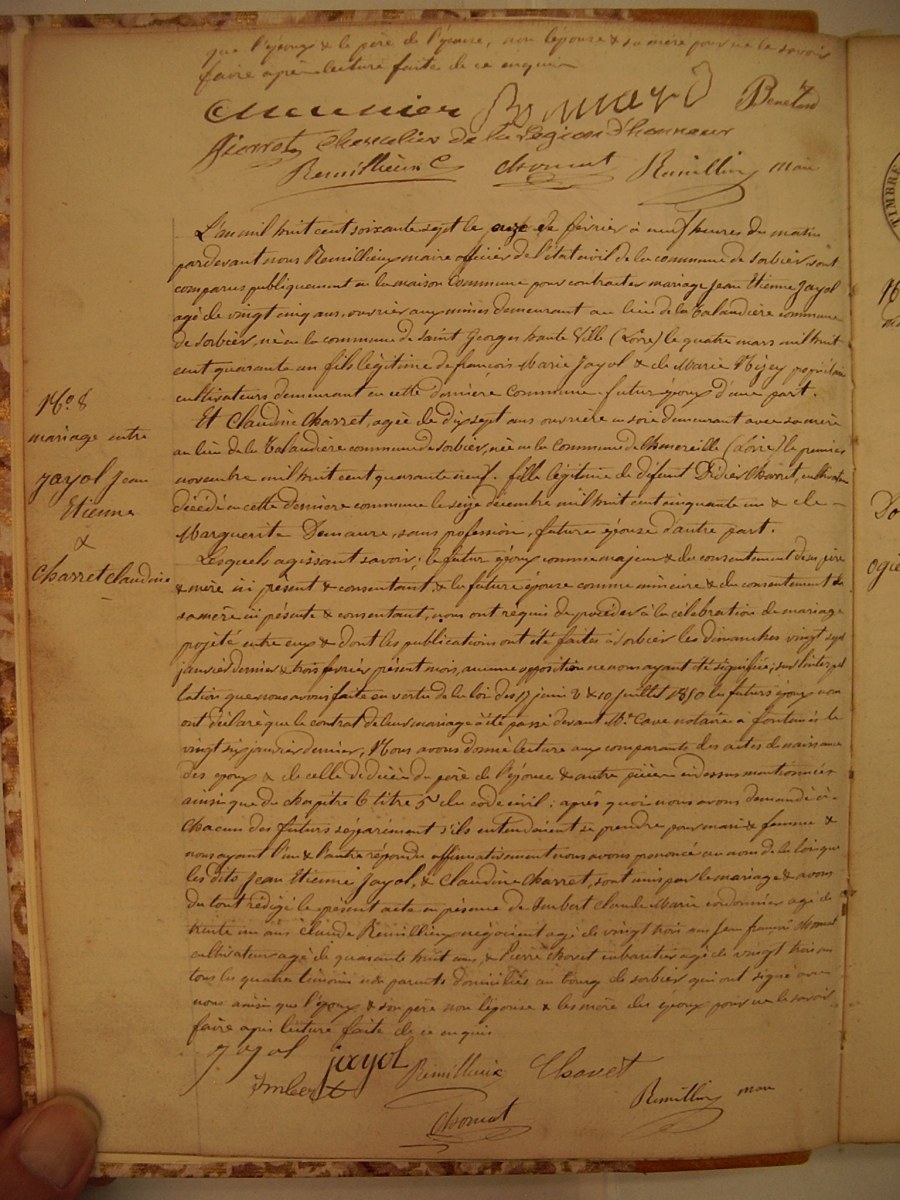 que l'époux & le père de l'épouse, non l'épouse & sa mère pour ne le savoir
faire après lecture faite de ce enquis
Meunier Bonnard
chevalier de la Légion d'honneur
Remillieux C Chomat Remillieux maire
L'an mil huit cent soixante sept le onze de février à neuf heures du matin
pardevant nous Remillieux maire officier de l'état civil de la commune de Sorbier, sont
comparus publiquement en la maison Commune pour contracter mariage Jean Etienne Jayol
agé de vingt cinq ans, ouvrier aux mines demeurant au lieu de la Talaudière commune
de Sorbier, né en la commune de Saint Georges haute Ville (Loire) le quatre mars mil huit
cent quarante un fils légitime de françois Marie Jayol & de Marie propriétaires
cultivateurs demeurant en cette dernière commune futur époux d'une part.
Et Claudine Charret, agée de dix sept ans ouvrière en soie demeurant avec sa mère
au lieu de la Talaudière commune de Sorbier, née en la commune de Chenereille (Loire) le premier
novembre mil huit cent quarante neuf. fille légitime de défunt Didier Charret, cultivateur
décédé en cette dernière commune le seize décembre mil huit cent cinquante un & de
Marguerite Demaure, sans profession, future épouse d'autre part.
Lesquels agissant savoir: le futur époux comme majeur & du consentement de ses père
& mère ici présent & consentant & la future épouse comme mineure & du consentement de
sa mère ici présente & consentant, nous ont requis de procéder à la célébration du mariage
projeté entre eux & dont les publications ont été faites à Sorbier les dimanches vingt sept
janvier dernier & trois février présent mois, aucune opposition ne nous ayant été signifiée; sur l'interpel
lation que nous avons faite en vertu de la loi des 17 juin & 10 juillet 1850 les futurs époux nous
ont déclaré que le contrat de leur mariage a été passé devant Me Cave notaire à fontanès le
vingt six janvier dernier, Nous avons donné lecture aux comparants des actes de naissance
des époux & de celle de décès du père de l'épouse & autre pièces cidessus mentionnées
ainsi que du chapitre 6 titre 5 du code civil: après quoi nous avons demandé à
chacun des futurs séparément s'ils entendaient se prendre pour mari & femme &
nous ayant l'un & l'autre répondu affirmativement nous avons prononcé au nom de la loi que
les dits Jean Etienne Jayol, & Claudine Charret, sont unis par le mariage & avons
du tout rédigé le présent acte en présence de Imbert Claude Marie cordonnier agé de
trente un ans Claude Remillieux négociant agé de vingt trois ans Jean françois Chomat
cultivateur agé de quarante huit ans, & Pierre Chovet cabaretier agé de vingt trois ans
tous les quatre témoins non parents domiciliés au bourg de Sorbier qui ont signé avec
nous ainsi que l'époux & son père non l'épouse & les mère des époux pour ne le savoir
faire après lecture faite de ce enquis
J. Jayol jayol Remillieux Chovet
Imbert Chomat Remillieux maire
No 8
mariage entre
Jayol Jean
Etienne
&
Charret Claudine
TIMBRE